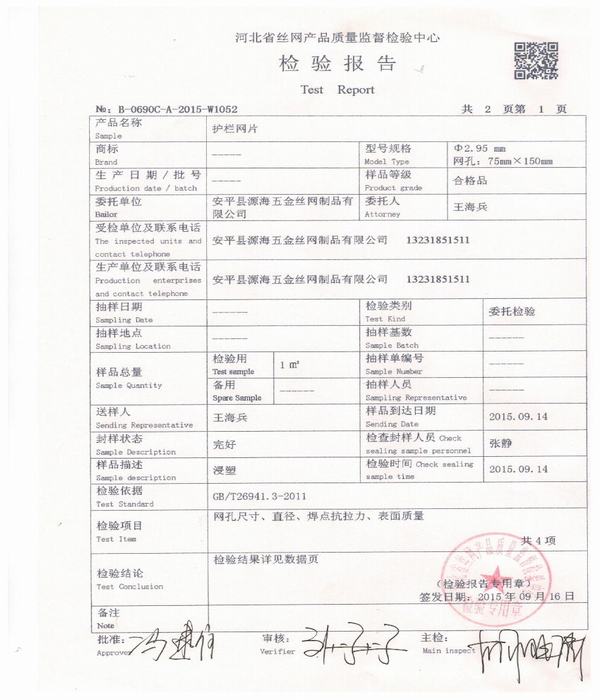 河北省丝网产品质量监督检验中心
检 验 报 告
Test Report
№: B-0690C-A-2015-W1052 共 2 页第 1 页
产品名称 护栏网片
Sample
商标 ----- 型号规格 Φ2.95 mm
Brand Model Type 网孔: 75mm×150mm
生 产 日 期 / 批 号 ----- 样品等级 合格品
Production date / batch Product grade
委托单位 安平县源海五金丝网制品有 委托人 王海兵
Bailor 限公司 Attorney
受检单位及联系电话
The inspected units and 安平县源海五金丝网制品有限公司 13231851511
contact telephone
生产单位及联系电话
Production enterprises 安平县源海五金丝网制品有限公司 13231851511
and contact telephone
抽样日期 ------ 检验类别 委托检验
Sampling Date Test Kind
抽样地点 ------ 抽样基数 ------
Sampling Location Sample Batch
样品总量 检验用 1 ㎡ 抽样单编号 ------
Sample Quantity Test sample Sample Number
备用 ------ 抽样人员 ------
Spare Sample Sampling Representative
送样人 王海兵 样品到达日期 2015.09.14
Sending Representative Sending Date
封样状态 完好 检查封样人员 Check 张静
Sample Description sealing sample personnel
样品描述 浸塑 检验时间 Check sealing 2015.09.14
Sample description sample time
检验依据 GB/T26941.3-2011
Test Standard
检验项目 网孔尺寸、直径、焊点抗拉力、表面质量
Test Item 共 4 项
检验结论 检验结果详见数据页
Test Conclusion (检验报告专用章)
签发日期: 2015 年 09 月 16 日
备注
Note
批准: 审核: 主检:
Approver Verifier Main inspect